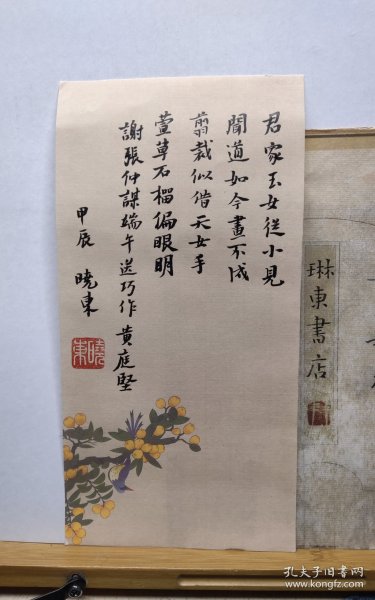 君家玉女從小見
聞道如今畫不成
翦裁似借天女手
萱草石榴偏眼明
謝張仲謀端午送巧作 黃庭堅
甲辰 曉東
曉東
琳東書店
孔夫子旧书网
www.kongfz.com